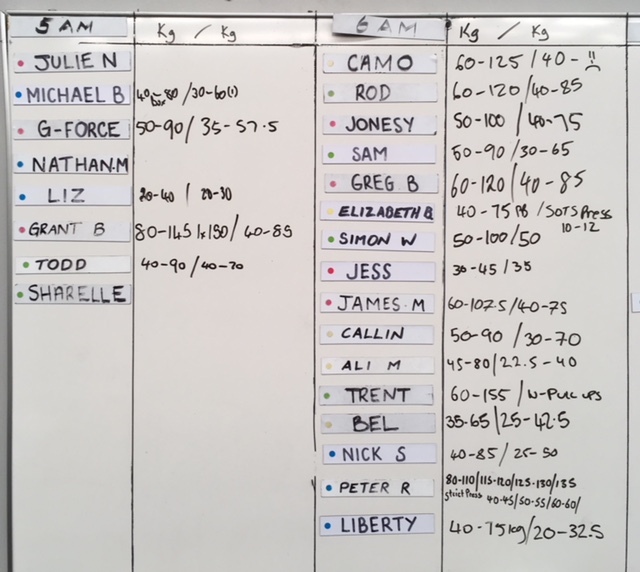 5 AM Kg / Kg
JULIE N
MICHAEL B 40 80 / 30-60(1)
G-FORCE 50-90 / 35-57.5
NATHAN.M
LIZ 20-40 / 20-30
GRANT B 80-145 1x150 / 40-85
TODD 40-90 / 40-70
SHARELLE
6 AM Kg / Kg
CAMO 60-125 / 40-
ROD 60-120 / 40-85
JONESY 50-100 / 40-75
SAM 50-90 / 30-65
GREG B 60-120 / 40-85
ELIZABETH B 40-75 PB / SOTS Press
10-12
SIMON W 50-100 / 50
JESS 30-45 / 35
JAMES.M 60-107.5 / 40-75
CALLIN 50-90 / 30-70
ALI M 45-80 / 22.5-40
TRENT 60-155 / W-PULL UPS
BEL 35-65 / 25-42.5
NICK S 40-85 / 25-50
PETER R 80-110/115-120/125-130/135
Strict Press 40-45/50-55/60-60/
LIBERTY 40-75kg / 20-32.5